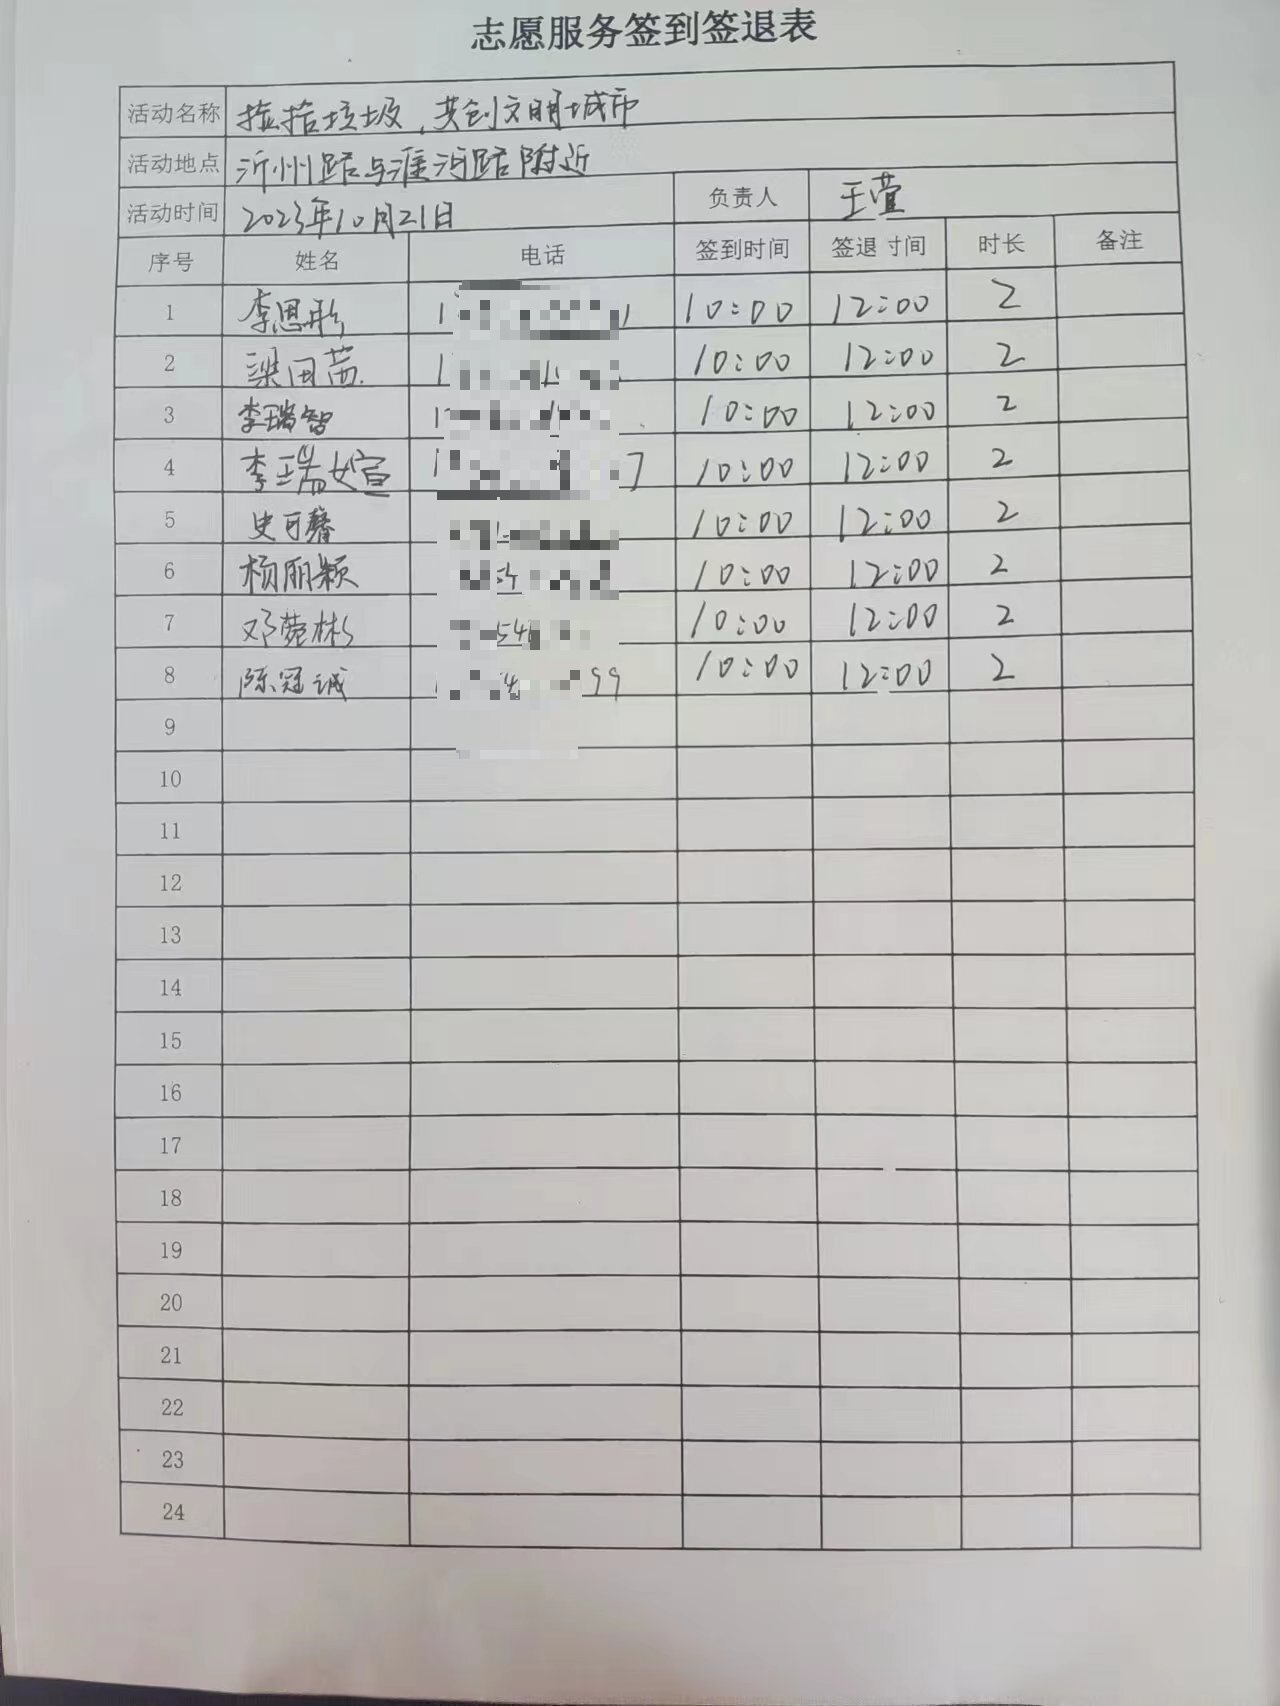 志愿服务签到签退表
活动名称 捡拾垃圾,共创文明城市
活动地点 沂州路与淮河路附近
活动时间 2023年10月21日 负责人 王萱
序号 姓名 电话 签到时间 签退时间 时长 备注
1 李思彤 10:00 12:00 2
2 梁田茜 10:00 12:00 2
3 李瑞智 10:00 12:00 2
4 李瑞媗 10:00 12:00 2
5 史可馨 10:00 12:00 2
6 杨丽颖 10:00 12:00 2
7 邓菀彬 10:00 12:00 2
8 陈冠诚 99 10:00 12:00 2
9
10
11
12
13
14
15
16
17
18
19
20
21
22
23
24